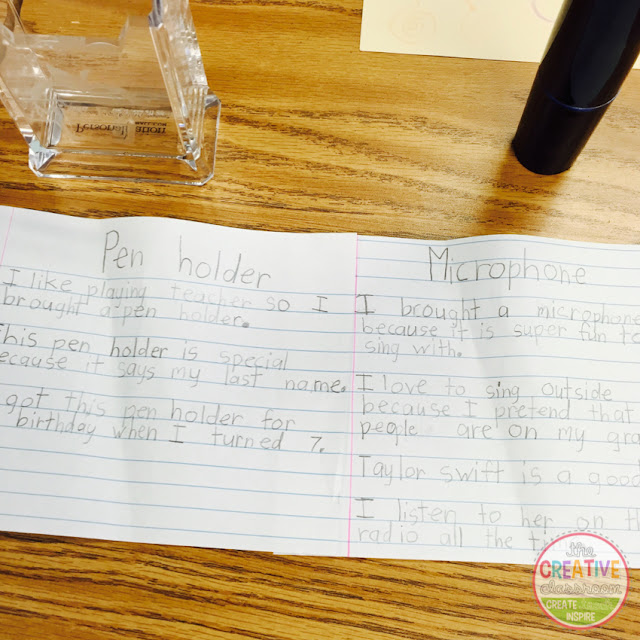 Pen holder
I like playing teacher so I
brought a pen holder.
This pen holder is special
because it says my last name.
got this pen holder for
birthday when I turned 7.
Microphone
I brought a microphone
because it is super fun to
sing with.
I love to sing outside
because I pretend that
people are on my
Taylor swift is a good
I listen to her on
radio all the
the
CREATIVE
classroom
CREATE
INSPIRE